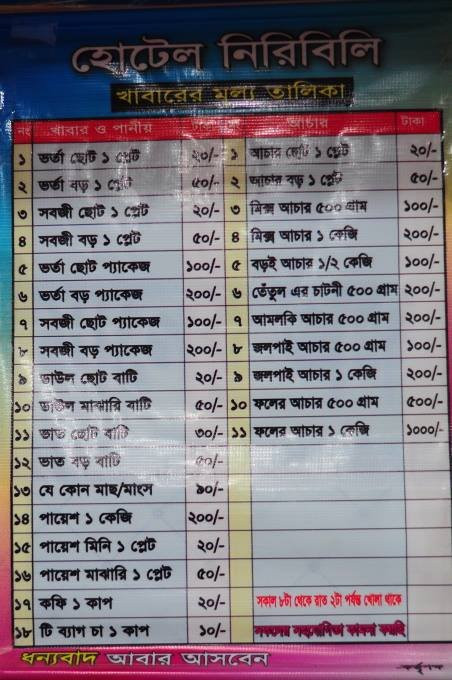 হোটেল নিরিবিলি
খাবারের মূল্য তালিকা
নং খাবার ও পানীয় আচার টাকা
১ ভর্তা ছোট ১ প্লেট ২০/- ১ আচার ছোট ১ প্লেট ২০/-
২ ভর্তা বড় ১ প্লেট ৫০/- ২ আচার বড় ১ প্লেট ৫০/-
৩ সবজী ছোট ১ প্লেট ২০/- ৩ মিক্স আচার ৫০০ গ্রাম ১০০/-
৪ সবজী বড় ১ প্লেট ৫০/- ৪ মিক্স আচার ১ কেজি ২০০/-
৫ ভর্তা ছোট প্যাকেজ ১০০/- ৫ বড়ই আচার ১/২ কেজি ১০০/-
৬ ভর্তা বড় প্যাকেজ ২০০/- ৬ তেঁতুল এর চাটনী ৫০০ গ্রাম ২০০/-
৭ সবজী ছোট প্যাকেজ ১০০/- ৭ আমলকি আচার ৫০০ গ্রাম ২০০/-
৮ সবজী বড় প্যাকেজ ২০০/- ৮ জলপাই আচার ৫০০ গ্রাম ১০০/-
৯ ডাউল ছোট বাটি ২০/- ৯ জলপাই আচার ১ কেজি ২০০/-
১০ ডাউল মাঝারি বাটি ৫০/- ১০ ফলের আচার ৫০০ গ্রাম ৫০০/-
১১ ভাত ছোট বাটি ৩০/- ১১ ফলের আচার ১ কেজি ১০০০/-
১২ ভাত বড় বাটি ৫০/-
১৩ যে কোন মাছ/মাংস ৯০/-
১৪ পায়েশ ১ কেজি ২০০/-
১৫ পায়েশ মিনি ১ প্লেট ২০/-
১৬ পায়েশ মাঝারি ১ প্লেট ৫০/-
১৭ কফি ১ কাপ ২০/- সকাল ৮টা থেকে রাত ২টা পর্যন্ত খোলা থাকে
১৮ টি ব্যাগ চা ১ কাপ ১০/- সকলের সহযোগিতা কামনা করছি
ধন্যবাদ আবার আসবেন
কর্তৃপক্ষ